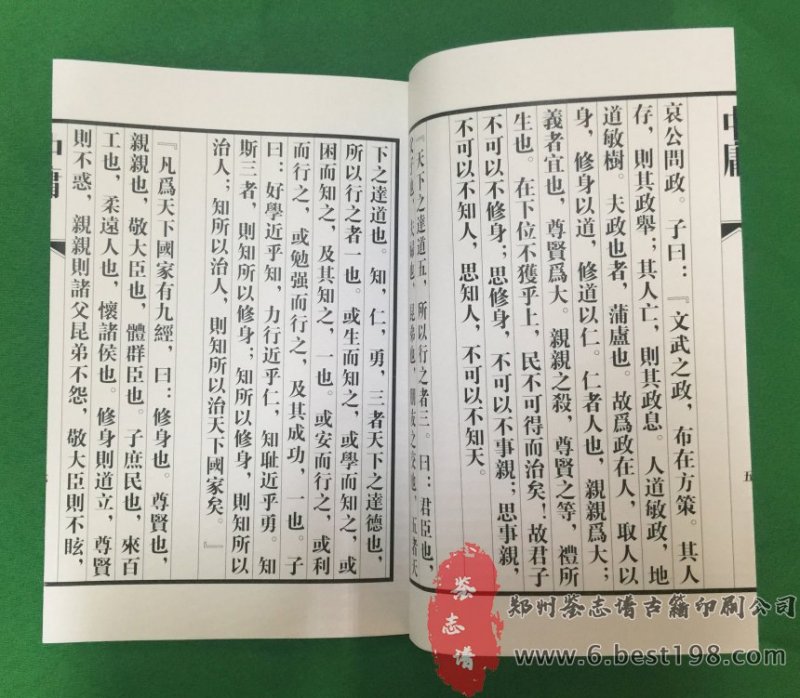 中庸
五
哀公問政。子曰：『文武之政，布在方策。其人
存，則其政舉；其人亡，則其政息。人道敏政，地
道敏樹。夫政也者，蒲盧也。故爲政在人，取人以
身，修身以道，修道以仁。仁者人也，親親爲大；
義者宜也，尊賢爲大。親親之殺，尊賢之等，禮所
生也。在下位不獲乎上，民不可得而治矣！故君子
不可以不修身；思修身，不可以不事親；思事親，
不可以不知人，思知人，不可以不知天。
『天下之達道五，所以行之者三。曰：君臣也，
父子也，夫婦也，昆弟也，朋友之交也，五者天
下之達道也。知，仁，勇，三者天下之達德也，
所以行之者一也。或生而知之，或學而知之，或
困而知之，及其知之，一也。或安而行之，或利
而行之，或勉强而行之，及其成功，一也。子
曰：好學近乎知，力行近乎仁，知耻近乎勇。知
斯三者，則知所以修身；知所以修身，則知所以
治人；知所以治人，則知所以治天下國家矣。』
『凡爲天下國家有九經，曰：修身也。尊賢也，
親親也，敬大臣也，體群臣也。子庶民也，來百
工也，柔遠人也，懷諸侯也。修身則道立，尊賢
則不惑，親親則諸父昆弟不怨，敬大臣則不眩，
中庸
鉴志谱
郑州鉴志谱古籍印刷公司
www.6.best198.com